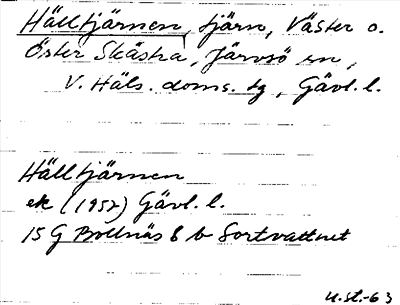 Hälltjärnen, tjärn, Väster o.
Öster Skästra, Järvsö sn,
V. Häls. doms. tg, Gävl. l.
Hälltjärnen
ek (1957) Gävl. l.
15 G Bollnäs 8 b Sortvattnet
u.st.-63